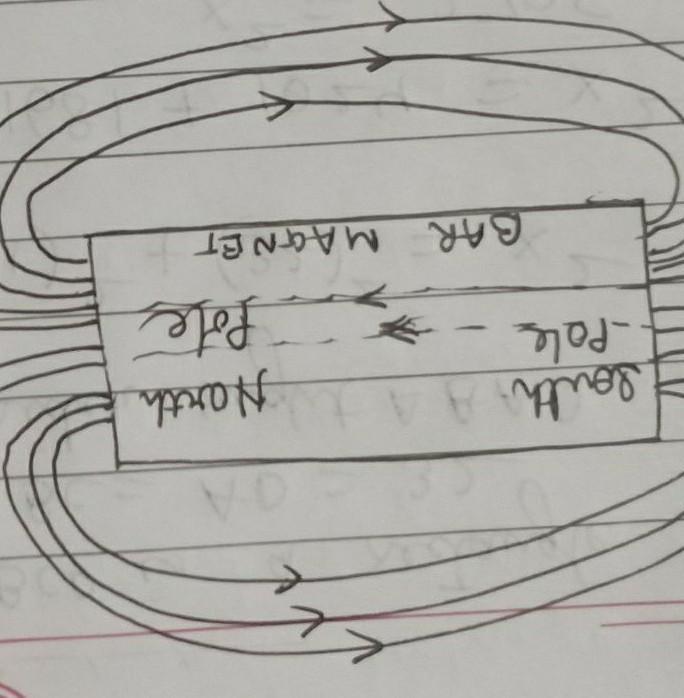 South North
Pole Pole
BAR MAGNET